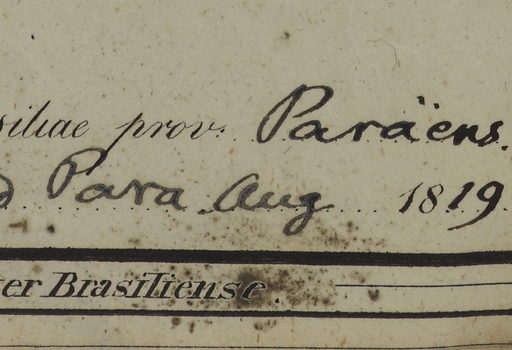 siliae prov. Paraëns.
d Para Aug 1819
ter Brasiliense.